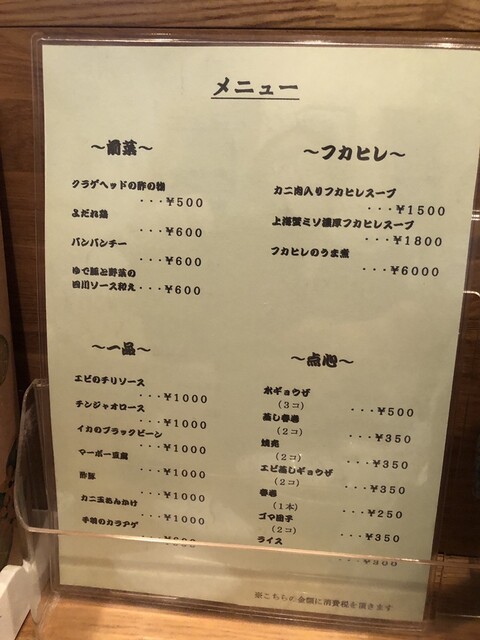 メニュー
～前菜～
クラゲヘッドの酢の物
・・・¥500
よだれ鶏
・・・¥600
バンバンヂー
・・・¥600
ゆで豚と野菜の
四川ソース和え・・・¥600
～フカヒレ～
カニ肉入りフカヒレスープ
・・・¥1500
上海蟹ミソ濃厚フカヒレスープ
・・・¥1800
フカヒレのうま煮
・・・¥6000
～一品～
エビのチリソース
・・・¥1000
チンジャオロース
・・・¥1000
イカのブラックビーン
・・・¥1000
マーボー豆腐
・・・¥1000
酢豚
・・・¥1000
カニ玉あんかけ
・・・¥1000
手羽のカラアゲ
～点心～
水ギョウザ
（3コ） ・・・¥500
蒸し春巻
（2コ） ・・・¥350
焼売
（2コ） ・・・¥350
エビ蒸しギョウザ
（2コ） ・・・¥350
春巻
（1本） ・・・¥250
ゴマ団子
（2コ） ・・・¥350
ライス
※こちらの金額に消費税を頂きます